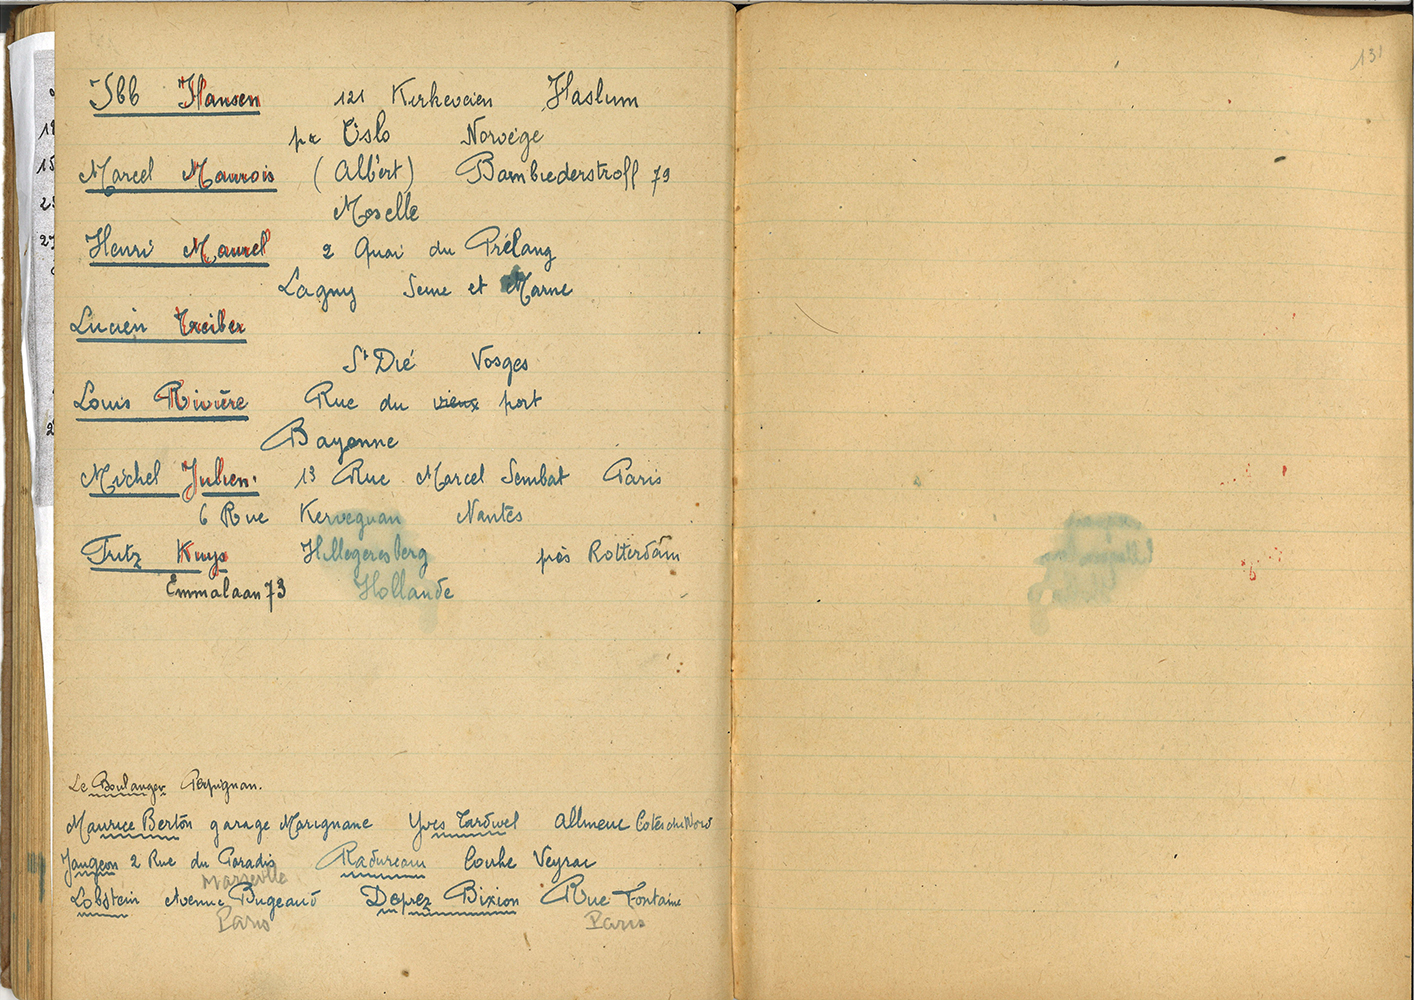 Ibb Hansen 121 Kirkeveien Haslum
pr Oslo Norvège
Marcel Maurois (Albert) Bambiederstroff 79
Moselle
Henri Maurel 2 Quai du Prélong
Lagny Seine et Marne
Lucien Treiber
St Dié Vosges
Louis Rivière Rue du vieux port
Bayonne
Michel Julien. 13 Rue Marcel Sembat Paris
6 Rue Kervegnan Nantes
Fritz Kuys Hillegersberg près Rotterdam
Emmalaan 73 Hollande
Le Boulanger Perpignan.
Maurice Berton garage Marignane Yves Tardivel Allineuc Cotes du Nord
Jaugeon 2 Rue du Paradis Radureau Couhe Veyrac
Marseille
Lobstein Avenue Bugeaud Deprez Bixion Rue Fontaine
Paris Paris
131